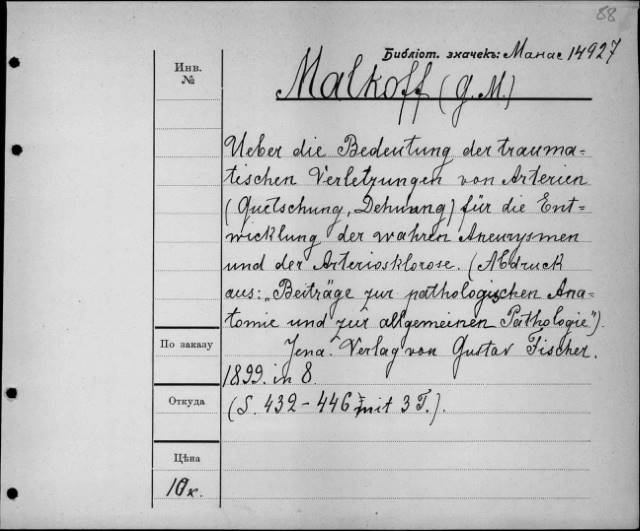 88
Библіот. значекъ: Манас 14927
Инв.
№
Malkoff (G. M.)
Ueber die Bedeutung der trauma=
tischen Verletzungen von Arterien
(Quetschung, Dehnung) für die Ent=
wicklung der wahren Aneurysmen
und der Arteriosklorose. (Abdruck
aus: „Beiträge zur pathologischen Ana=
tomie und zur allgemeinen Pathologie").
По заказу
Jena. Verlag von Gustav Fischer.
1899. in 8.
Откуда
(S. 432-446 mit 3 T.).
Цѣна
10 к.